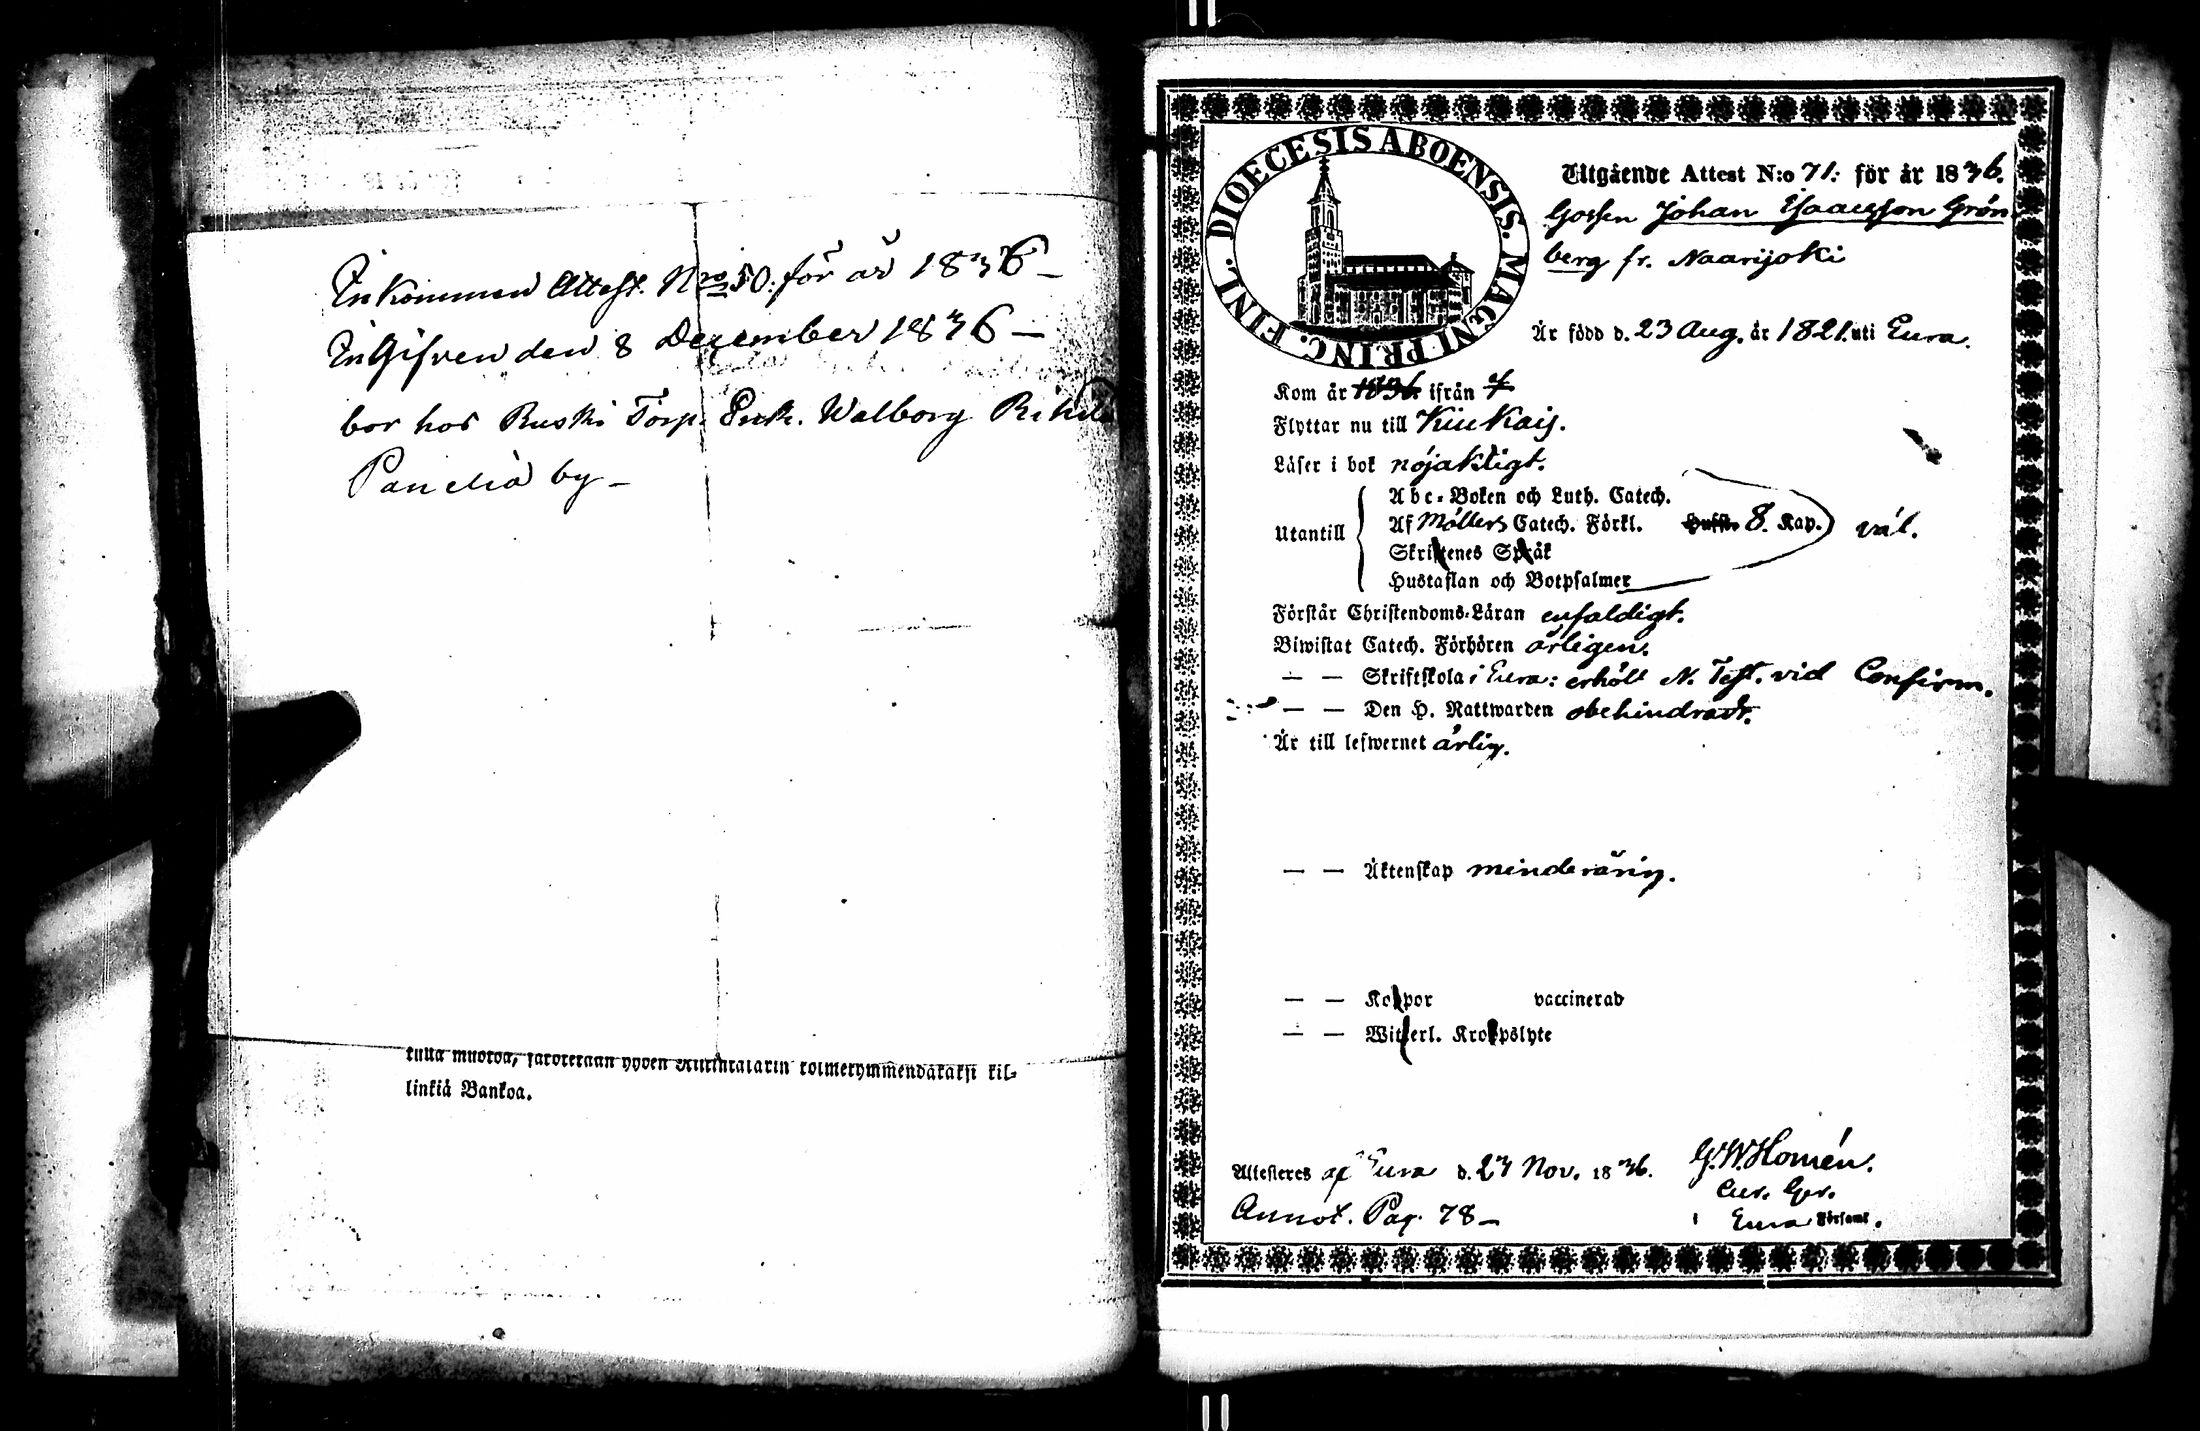 Inkommen Attest. Nro 50. för år 1836 –
Ingifven den 8 December 1836 –
bor hos Ruski Torp. Enk. Walborg
Panelia by –
linkiä Bankoa.
DIOECESIS ABOENSIS. MAGNI PRINC. FINL.
Utgående Attest N:o 71: för år 1836.
Gossen Johan Isaacsson Grön-
berg fr. Naarijoki
Är född d. 23 Aug. år 1821. uti Eura.
Kom år 1836 ifrån
Flyttar nu till Kiukais.
Läser i bok nöjaktigt.
Utantill
Abc-Boken och Luth. Catech.
Af Möllers Catech. Förkl. Husst. 8. Kap. väl.
Skriftenes Språk
Hustaflan och Botpsalmer
Förstår Christendoms-Läran enfaldigt.
Biwistat Catech. Förhören årligen.
— — Skriftskola i Eura: erhöll N. Test. vid Confirm.
— — Den H. Nattwarden obehindradt.
Är till lefwernet ärlig.
— — Äktenskap minderårig.
— — Koppor vaccinerad
— — Witterl. Kroppslyte
Attesteres af Eura d. 23 Nov. 1836. G. W. Homén.
Cur. Ger.
Annot. Pag. 78 – i Eura Församl.